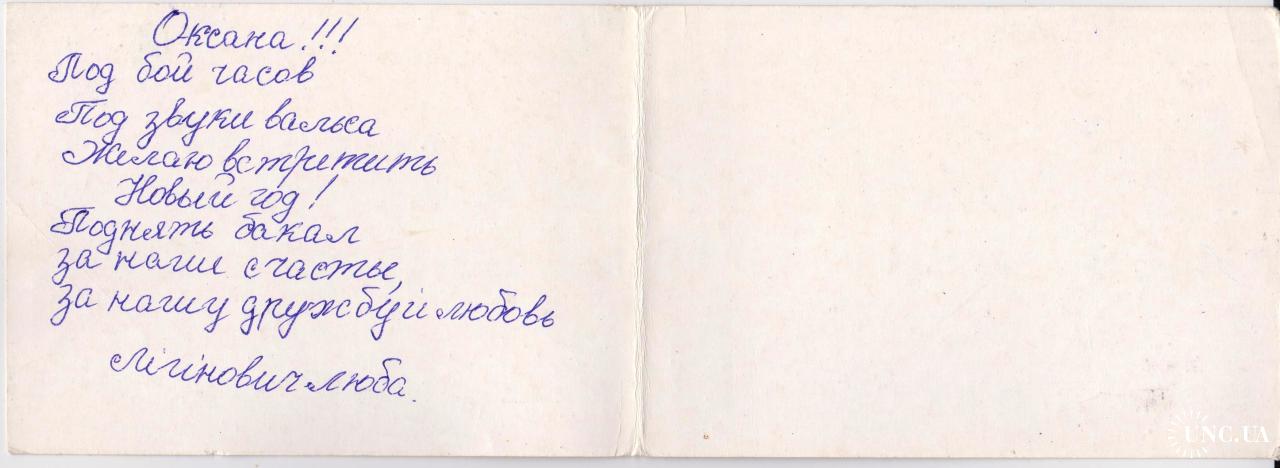 Оксана!!!
Под бой часов
Под звуки вальса
Желаю встритить
Новый год!
Поднять бакал
за наше счастье,
за нашу дружбу і любовь
Лігінович Люба.
UNC.UA